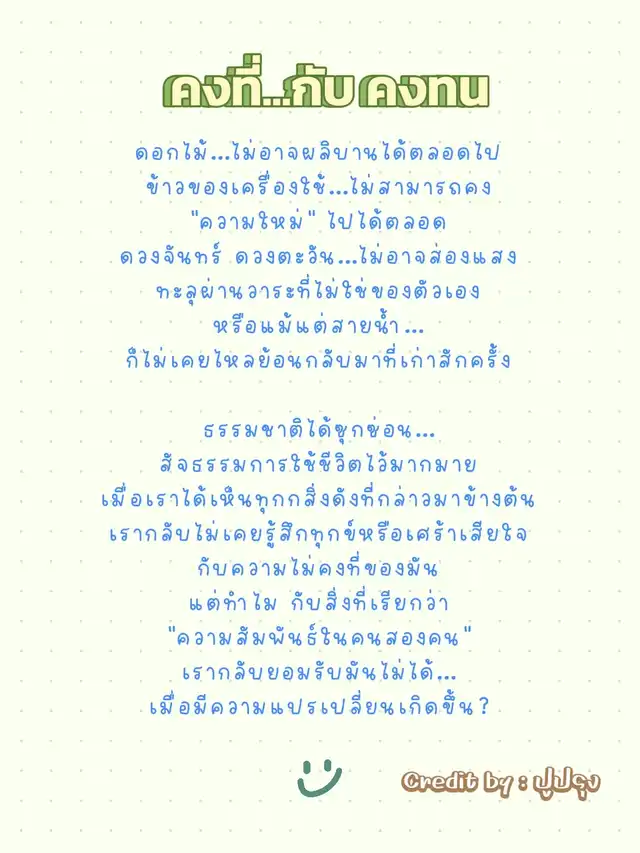 คงที่...กับ คงทน
ดอกไม้...ไม่อาจผลิบานได้ตลอดไป
ข้าวของเครื่องใช้...ไม่สามารถคง
"ความใหม่" ไปได้ตลอด
ดวงจันทร์ ดวงตะวัน...ไม่อาจส่องแสง
ทะลุผ่านวาระที่ไม่ใช่ของตัวเอง
หรือแม้แต่สายน้ำ...
ก็ไม่เคยไหลย้อนกลับมาที่เก่าสักครั้ง
ธรรมชาติได้ซุกซ่อน...
สัจธรรมการใช้ชีวิตไว้มากมาย
เมื่อเราได้เห็นทุกกสิ่งดังที่กล่าวมาข้างต้น
เรากลับไม่เคยรู้สึกทุกข์หรือเศร้าเสียใจ
กับความไม่คงที่ของมัน
แต่ทำไม กับสิ่งที่เรียกว่า
"ความสัมพันธ์ในคนสองคน"
เรากลับยอมรับมันไม่ได้...
เมื่อมีความแปรเปลี่ยนเกิดขึ้น?
Credit by : ปูปรุง